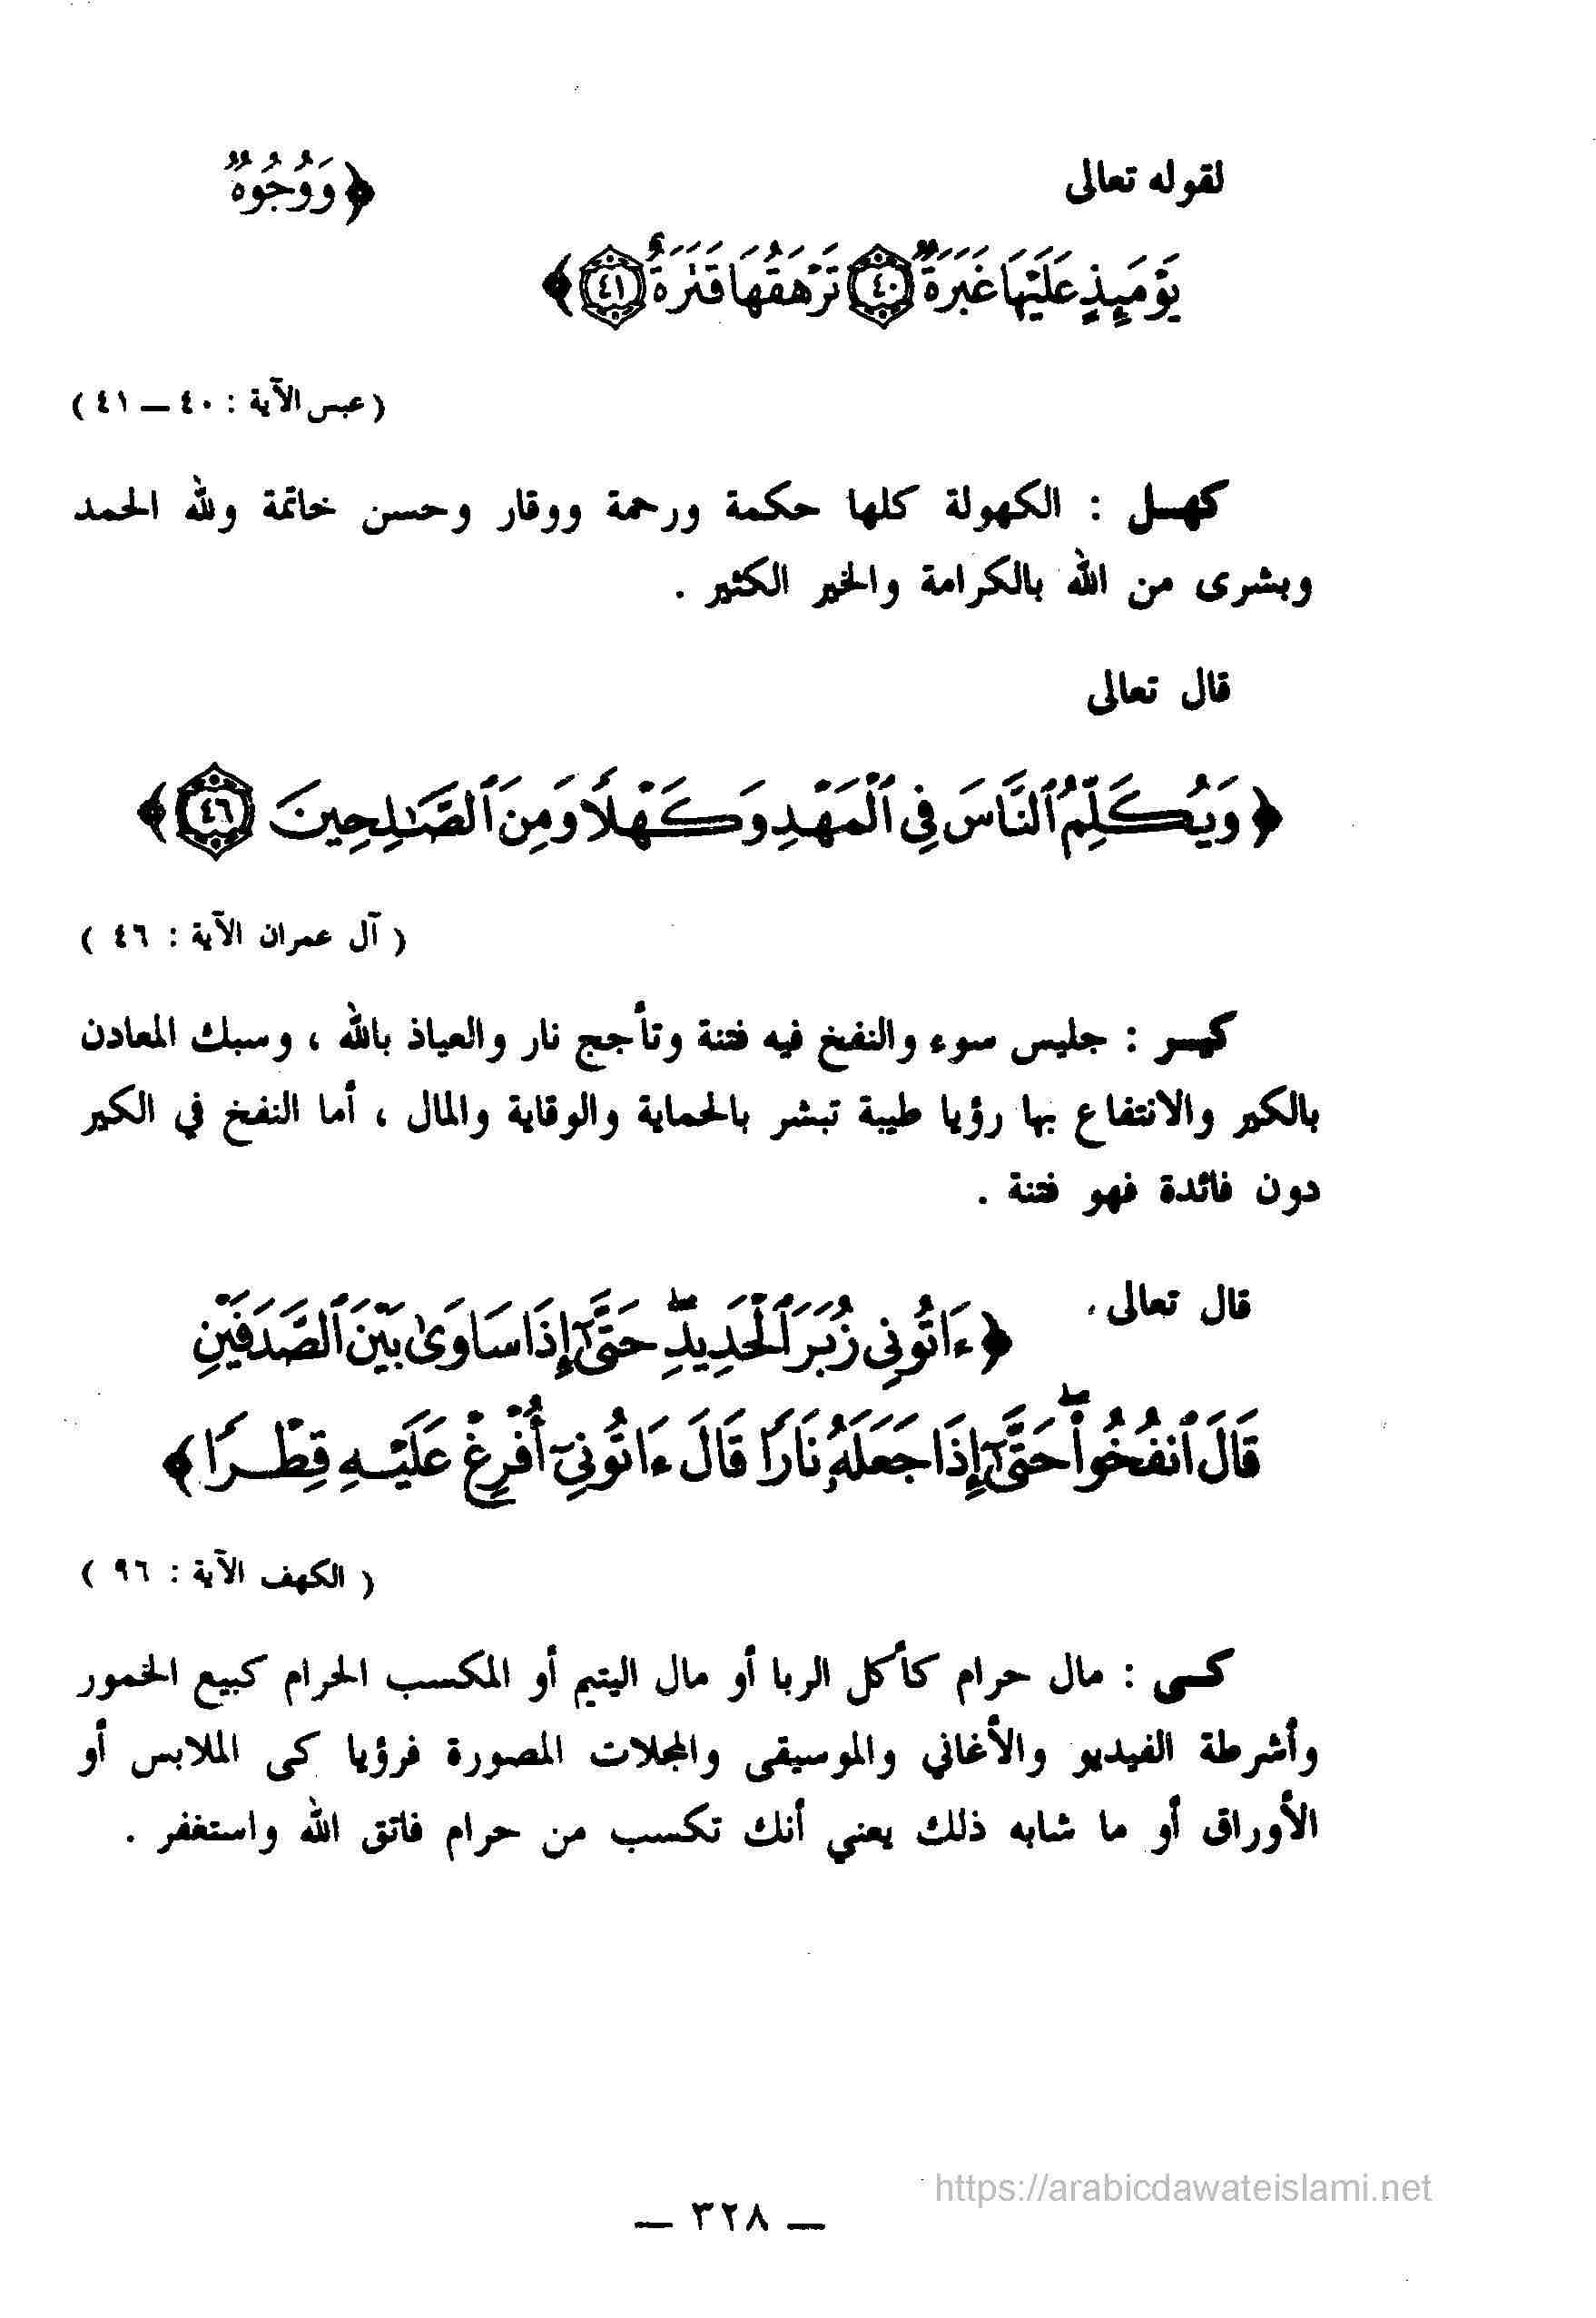 لقوله تعالى ﴿وَوُجُوهٌ
يَوْمَئِذٍ عَلَيْهَا غَبَرَةٌ ٤٠ تَرْهَقُهَا قَتَرَةٌ ٤١﴾
( عبس الآية : ٤٠ — ٤١ )
كهـل : الكهولة كلها حكمة ورحمة ووقار وحسن خاتمة ولله الحمد
وبشرى من الله بالكرامة والخير الكثير .
قال تعالى
﴿ وَيُكَلِّمُ ٱلنَّاسَ فِى ٱلْمَهْدِ وَكَهْلًا وَمِنَ ٱلصَّٰلِحِينَ ٤٦ ﴾
( آل عمران الآية : ٤٦ )
كيـر : جليس سوء والنفخ فيه فتنة وتأجج نار والعياذ بالله ، وسبك المعادن
بالكير والانتفاع بها رؤيا طيبة تبشر بالحماية والوقاية والمال ، أما النفخ في الكير
دون فائدة فهو فتنة .
قال تعالى ﴿ ءَاتُونِى زُبَرَ ٱلْحَدِيدِ ۖ حَتَّىٰٓ إِذَا سَاوَىٰ بَيْنَ ٱلصَّدَفَيْنِ
قَالَ ٱنفُخُوا۟ ۖ حَتَّىٰٓ إِذَا جَعَلَهُۥ نَارًا قَالَ ءَاتُونِىٓ أُفْرِغْ عَلَيْهِ قِطْرًا ﴾
( الكهف الآية : ٩٦ )
كـى : مال حرام كأكل الربا أو مال اليتيم أو المكسب الحرام كبيع الخمور
وأشرطة الفيديو والأغاني والموسيقى والمجلات المصورة فرؤيا كى الملابس أو
الأوراق أو ما شابه ذلك يعني أنك تكسب من حرام فاتق الله واستغفر .
https://arabicdawateislami.net
— ٣٢٨ —